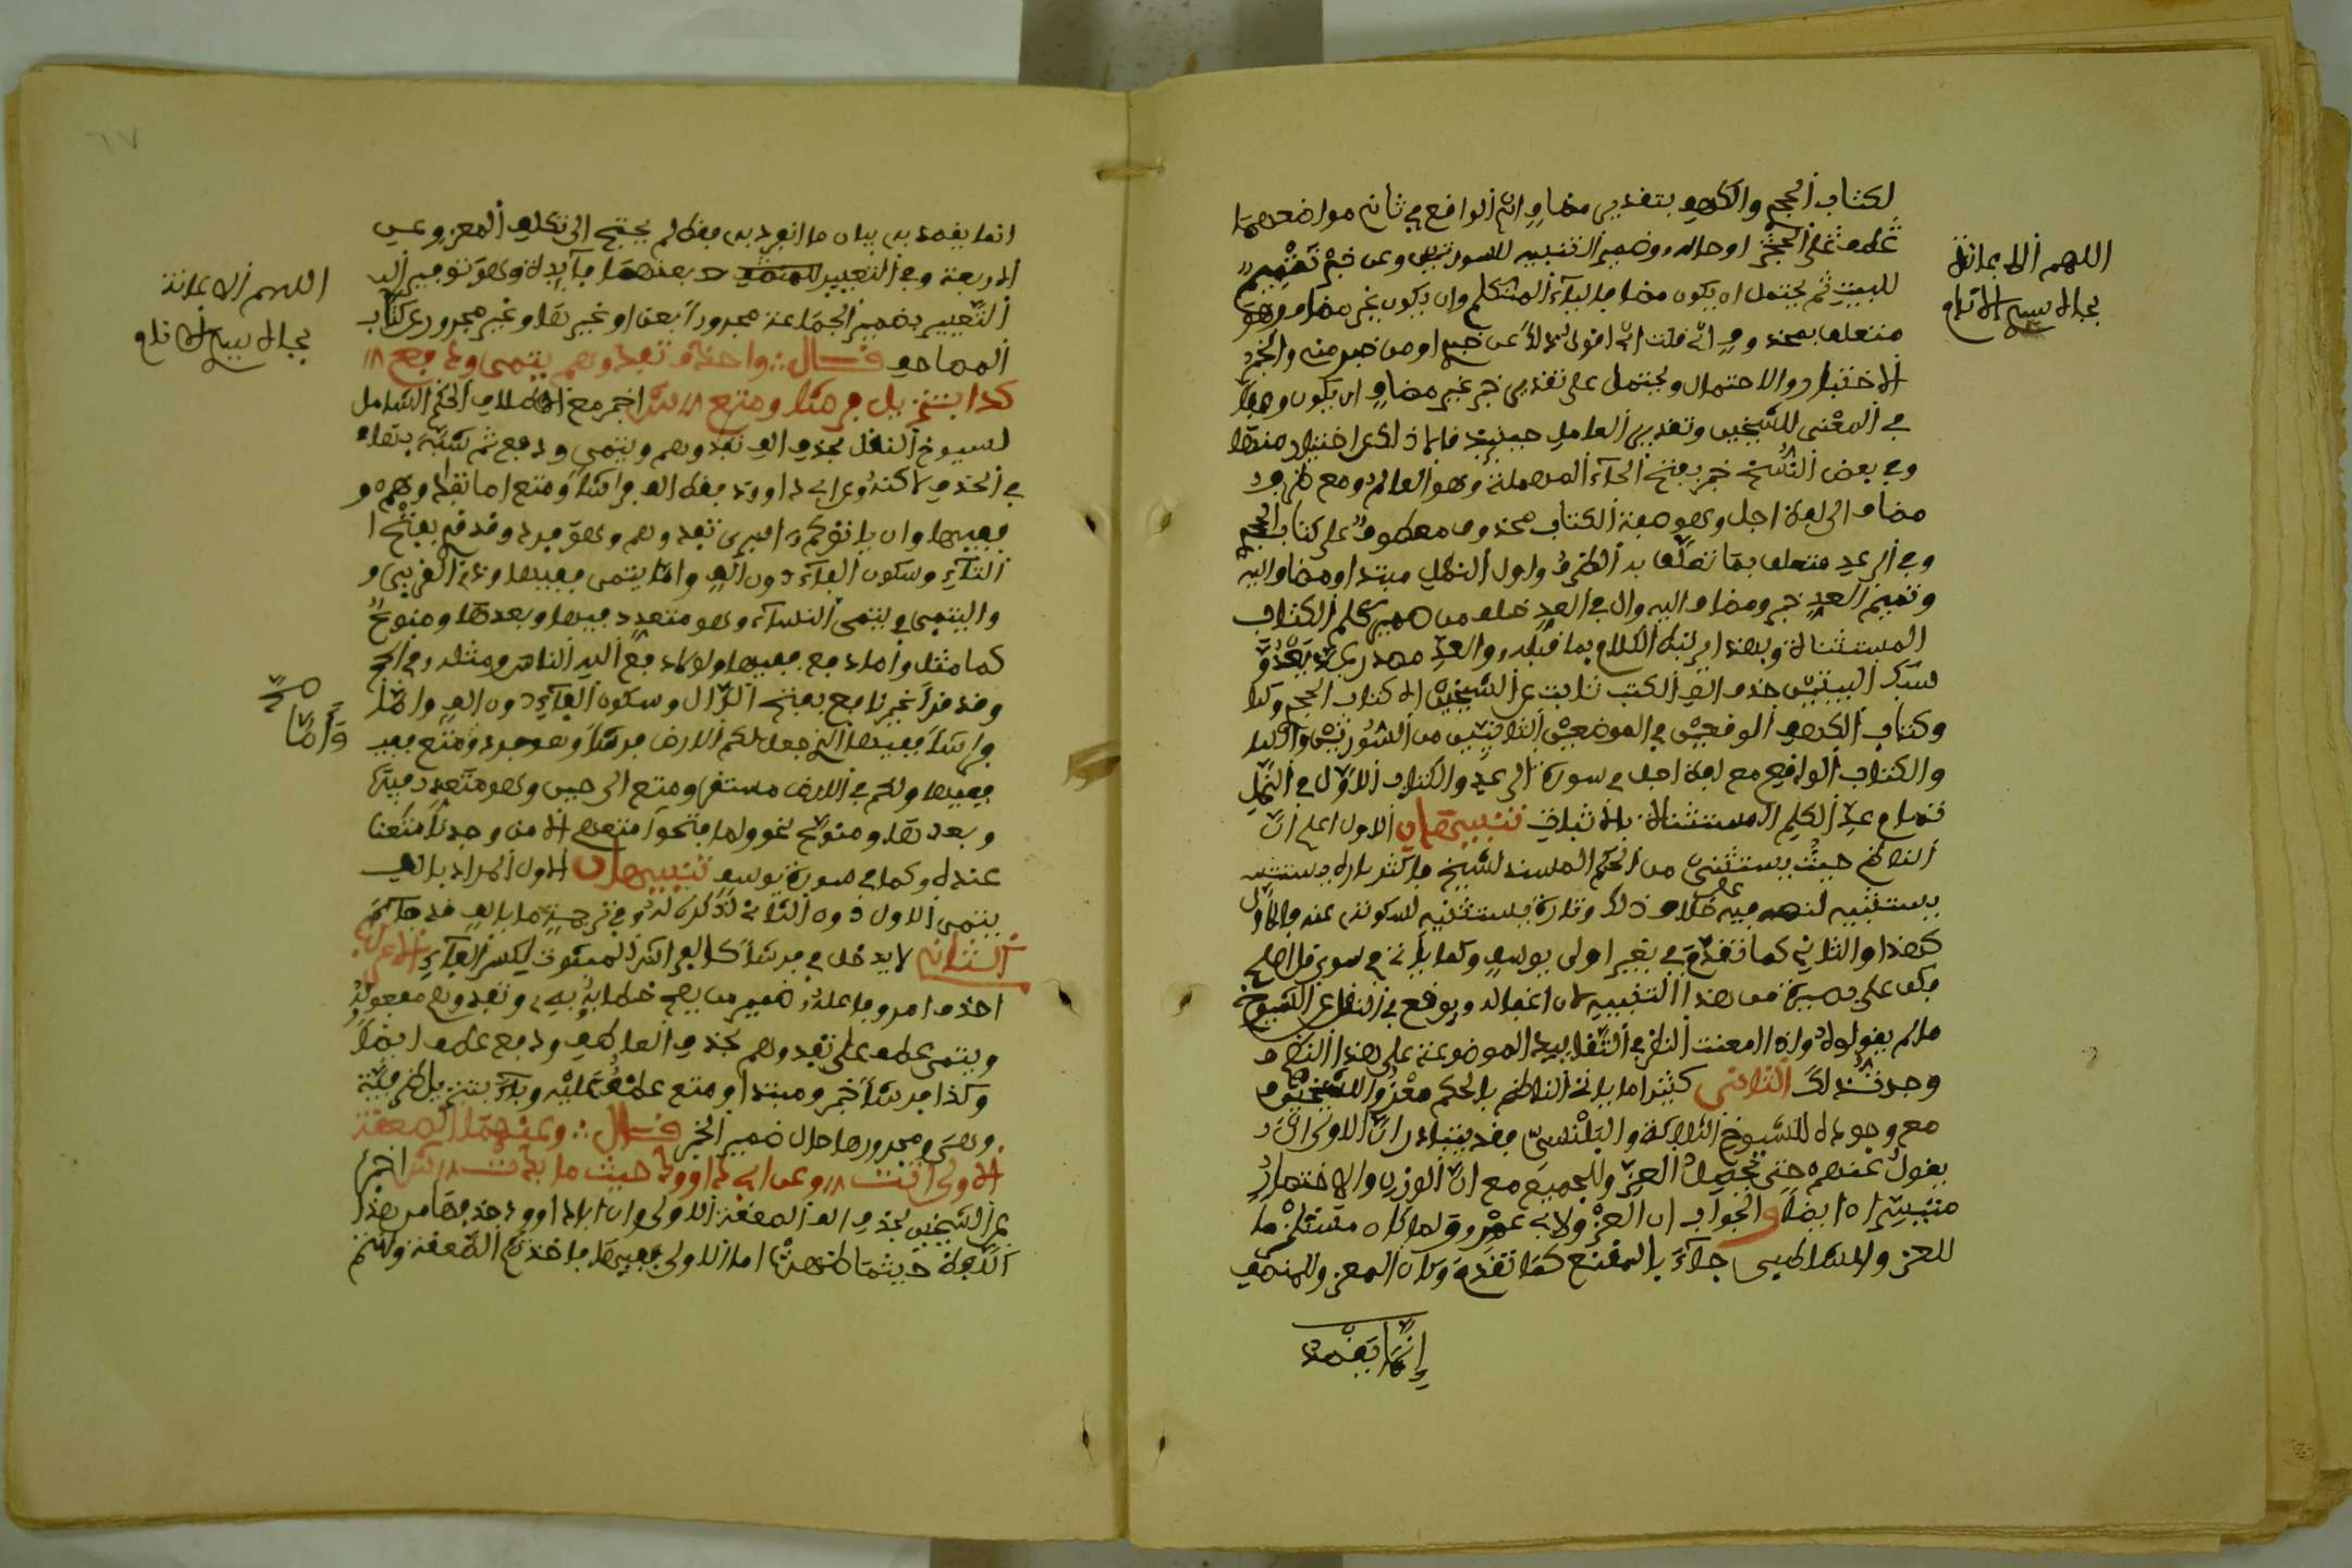 لكتاب الحجر والكهف بتقدير مضاف اي الواقع في ثاني مواضعهما
عطف على الحجر او حال وضمير التثنية للسورتين وعن خبر تتميم
للبيت ثم يحتمل ان يكون مضافا لياء المتكلم وان يكون غير مضاف وهو
متعلق بمحذوف اي قلت اي اقول نقلا عن خبر او من خبر منه والخبر
الاختبار والاحتمال ويحتمل على تقدير خبر غير مضاف ان يكون وصفا
في المعنى للشيخين وتقدير العامل حينئذ قالا ذلك عن اختبار منهما
وفي بعض النسخ خبر بفتح الحاء المهملة وهو العالم ومع ظرف
مضاف الى لفظ اجل وهو صفة الكتاب محذوف معطوف على كتاب الحجر
وفي الرعد متعلق بما تعلق به الظرف واول النمل مبتدا ومضاف اليه
وتتميم العد خبر ومضاف اليه وال في العد خلف من ضمير كلم الكتاب
المستثناة وبهذا يرتبط الكلام بما قبله والعد مصدر عد يعد
سبك البيتين حذف الف الكتب ثابت عن الشيخين الا كتاب الحجر وكذا
وكتاب الكهف الواقعين في الموضعين الثانيين من السورتين والا
والكتاب الواقع مع لفظ اجل في سورة الرعد والكتاب الاول في النمل
تمام عد الكلم المستثناة بالاتفاق تنبيهان الاول اعلم ان
الناظم حيث يستثني من الحكم المسند لشيخ ما كثر تارة يستثنيه
يستثنيه لنصه فيه على خلاف ذلك وتارة يستثنيه لسكوته عنه فالاول
كهذا والثاني كما تقدم في بغير اولى يوسف وكما ياتي في سوى قل اصلح
فكن على بصيرة من هذا التنبيه لان اغفاله يوقع في النقل عن الشيوخ
ما لم يقولوا واذا امعنت النظر في التقاييد الموضوعة على هذا النظم
وجدت ذلك الثاني كثيرا ما ياتي الناظم بالحكم معزوا للشيخين
مع وجوده للشيوخ الثلاثة والبلنسي فقد يتبادر ان الاولى ان
يقول عنهم حتى يحصل العزو للجميع مع ان الوزن والاختصار
متيسران ايضا والجواب ان العزو لابي عمرو لما كان مستلزما
للعزو للشاطبي جاء بالمقنع كما تقدم وكان المعزو للمنصف
انما يقصد
اللهم الاعانة
بجاه سيد الانام
انما يقصد به بيان ما انفرد به فقط لم يحتج الى تكلف العزو عن
الاربعة وفي التعبير للمنصف د بعنهما فائدة وهو توفير الب
التعبير بضمير الجماعة مجرورا بعن او غيرها وغير مجرور عن كتاب
المصاحف قال واحذف تفادوهم يتمى ودفع ۱۸
كذا بتنزيل فرشا ومتع ۱۸ ش اخبر مع اطلاق الحكم الشامل
لشيوخ النقل بحذف الف تفادوهم ويتمى ودفع ثم شبه بها
في الحذف لاكن عن ابي داوود فقط الف فراشا ومتع اما تفادوهم
ففيها وان ياتوكم اسرى تفدوهم وهو مفرد وقد قرئ بفتح ا
التاء وسكون الفاء دون الف واما يتمى ففيها وذي القربى و
واليتمى ويتمى النساء وهو متعدد فيها وبعدها ومنوع
كما مثل واما دفع ففيها ولولا دفع الله الناس ومثله في الحج
وقد قرا غير نافع بفتح الدال وسكون الفاء دون الف واما
فراشا ففيها الذي جعل لكم الارض فرشا وهو مفرد ومتع ففيه
ففيها ولكم في الارض مستقر ومتع الى حين وهو متعدد فيها
وبعدها ومنوع نحو ولما فتحوا متعهم الا من وجدنا متعنا
عنده وكما في سورة يوسف تنبيهان الاول المراد بالف
يتمى الاول دون الثاني لذكره له في ترجمة ما بالف قد جاء
الثاني لا يدخل في فرشا كالفراش المبثوث لكسر الفاء الاعراب
احذف امر وفاعله ضمير من يصح خطابه به وتفدوهم مفعوله
ويتمى عطف على تفدوهم بحذف العاطف ودفع عطف ايضا
وكذا فرشا خبر ومبتدا ومتع عطف عليه وباء بتنزيل ظرفية
وهي ومجرورها حال ضمير الخبر قال وعنهما الصعقة
الاولى اتت ۱۸ وعن ابي داوود حيث ما بدت ۱۸ ش اخبر
عن الشيخين بحذف الف الصعقة الاولى وان ابا داوود حذفها من هذا
اللفظ حيثما ظهرت اما الاولى ففيها فاخذتكم الصعقة وانتم
اللهم الاعانة
بجاه سيد الانام
صح
واما
٦٧